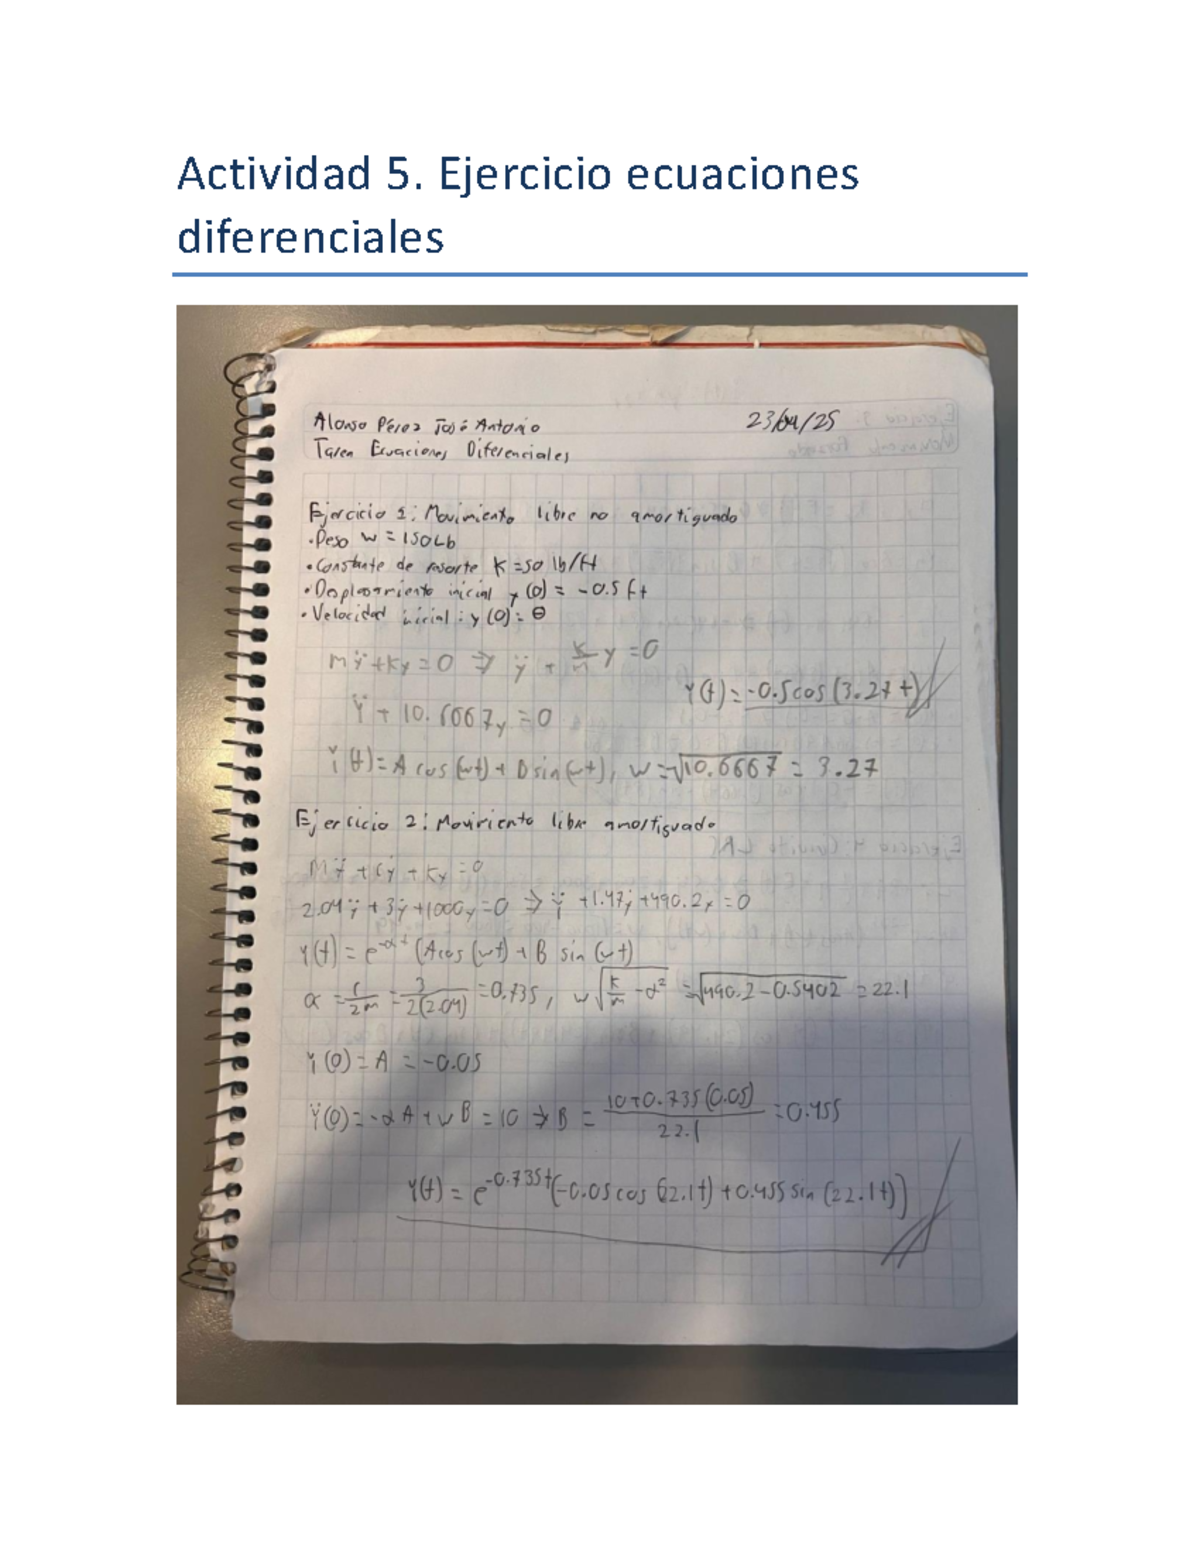 Actividad 5. Ejercicio ecuaciones
diferenciales
Alonso Pérez José Antonio 23/04/25
Tarea Ecuaciones Diferenciales
Ejercicio 1: Movimiento libre no amortiguado
• Peso W = 150 Lb
• Constante de resorte K = 50 lb/ft
• Desplazamiento inicial y (0) = -0.5 ft
• Velocidad inicial: y (0) = 0
mÿ + ky = 0 ⇒ ÿ + k/m y = 0
Y(t) = -0.5 cos (3.27 t)
Ÿ + 10.6667y = 0
Y(t) = A cos (wt) + B sin (wt), w = √10.6667 = 3.27
Ejercicio 2: Movimiento libre amortiguado
mÿ + cẏ + ky = 0
2.04ÿ + 3ẏ + 1000y = 0 ⇒ ÿ + 1.47ẏ + 490.2y = 0
Y(t) = e^-αt (A cos (wt) + B sin (wt)
α = c/2m = 3/2(2.04) = 0.735, w √k/m - α² = √490.2 - 0.5402 = 22.1
Y(0) = A = -0.05
Ẏ(0) = -αA + wB = 10 ⇒ B = 10+0.735(0.05)/22.1 = 0.455
Y(t) = e^-0.735t (-0.05 cos (22.1t) + 0.455 sin (22.1t))